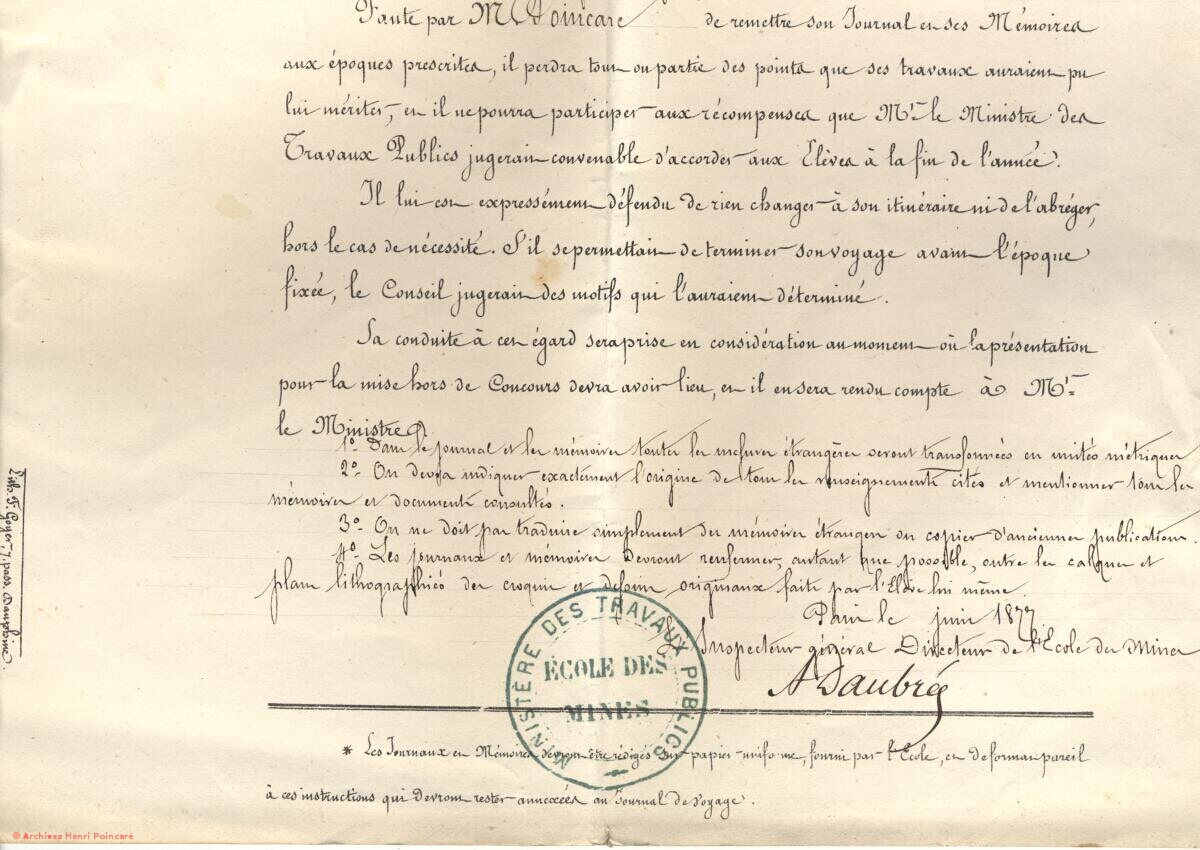 Faute par M Poincaré de remettre son Journal et ses Mémoires
aux époques prescrites, il perdra tout ou partie des points que ses travaux auraient pu
lui mériter, et il ne pourra participer aux récompenses que Mr. le Ministre des
Travaux Publics jugerait convenable d'accorder aux Elèves à la fin de l'année.
Il lui est expressément défendu de rien changer à son itinéraire ni de l'abréger,
hors le cas de nécessité. S'il se permettait de terminer son voyage avant l'époque
fixée, le Conseil jugerait des motifs qui l'auraient déterminé.
Sa conduite à cet égard sera prise en considération au moment où la présentation
pour la mise hors de Concours devra avoir lieu, et il en sera rendu compte à Mr.
le Ministre.
1o. Dans le journal et les mémoires toutes les mesures étrangères seront transformées en unités métriques
2o. On devra indiquer exactement l'origine de tous les renseignements cités et mentionner tous les
mémoires et documents consultés.
3o. On ne doit pas traduire simplement des mémoires étrangers ou copier d'anciennes publications.
4o. Les journaux et mémoires devront renfermer, autant que possible, outre les calques et
plans lithographiés des croquis et dessins originaux faits par l'Elève lui même.
Paris le juin 1877
L'Inspecteur général Directeur de l'Ecole des Mines
A Daubrée
MINISTÈRE DES TRAVAUX PUBLICS
ÉCOLE DES
MINES
* Les Journaux et Mémoires devront être rédigés sur papier uniforme, fourni par l'Ecole, et de format pareil
à ces instructions qui devront rester annexées au Journal de Voyage.
Lith. F. Goyer, 7, pass. Dauphine.
© Archives Henri Poincaré